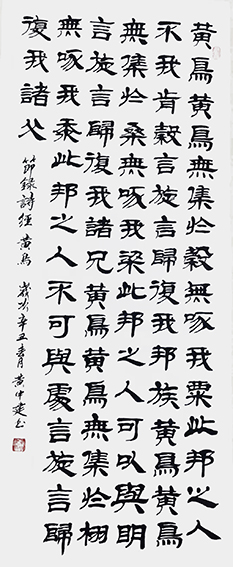 黃鳥黃鳥無集於穀無啄我粟此邦之人
不我肯穀言旋言歸復我邦族黃鳥黃鳥
無集於桑無啄我梁此邦之人可以與明
言旋言歸復我諸兄黃鳥黃鳥無集於栩
無啄我黍此邦之人不可與處言旋言歸
復我諸父
節錄詩經 黃鳥 歲次辛丑春月 黃中建书